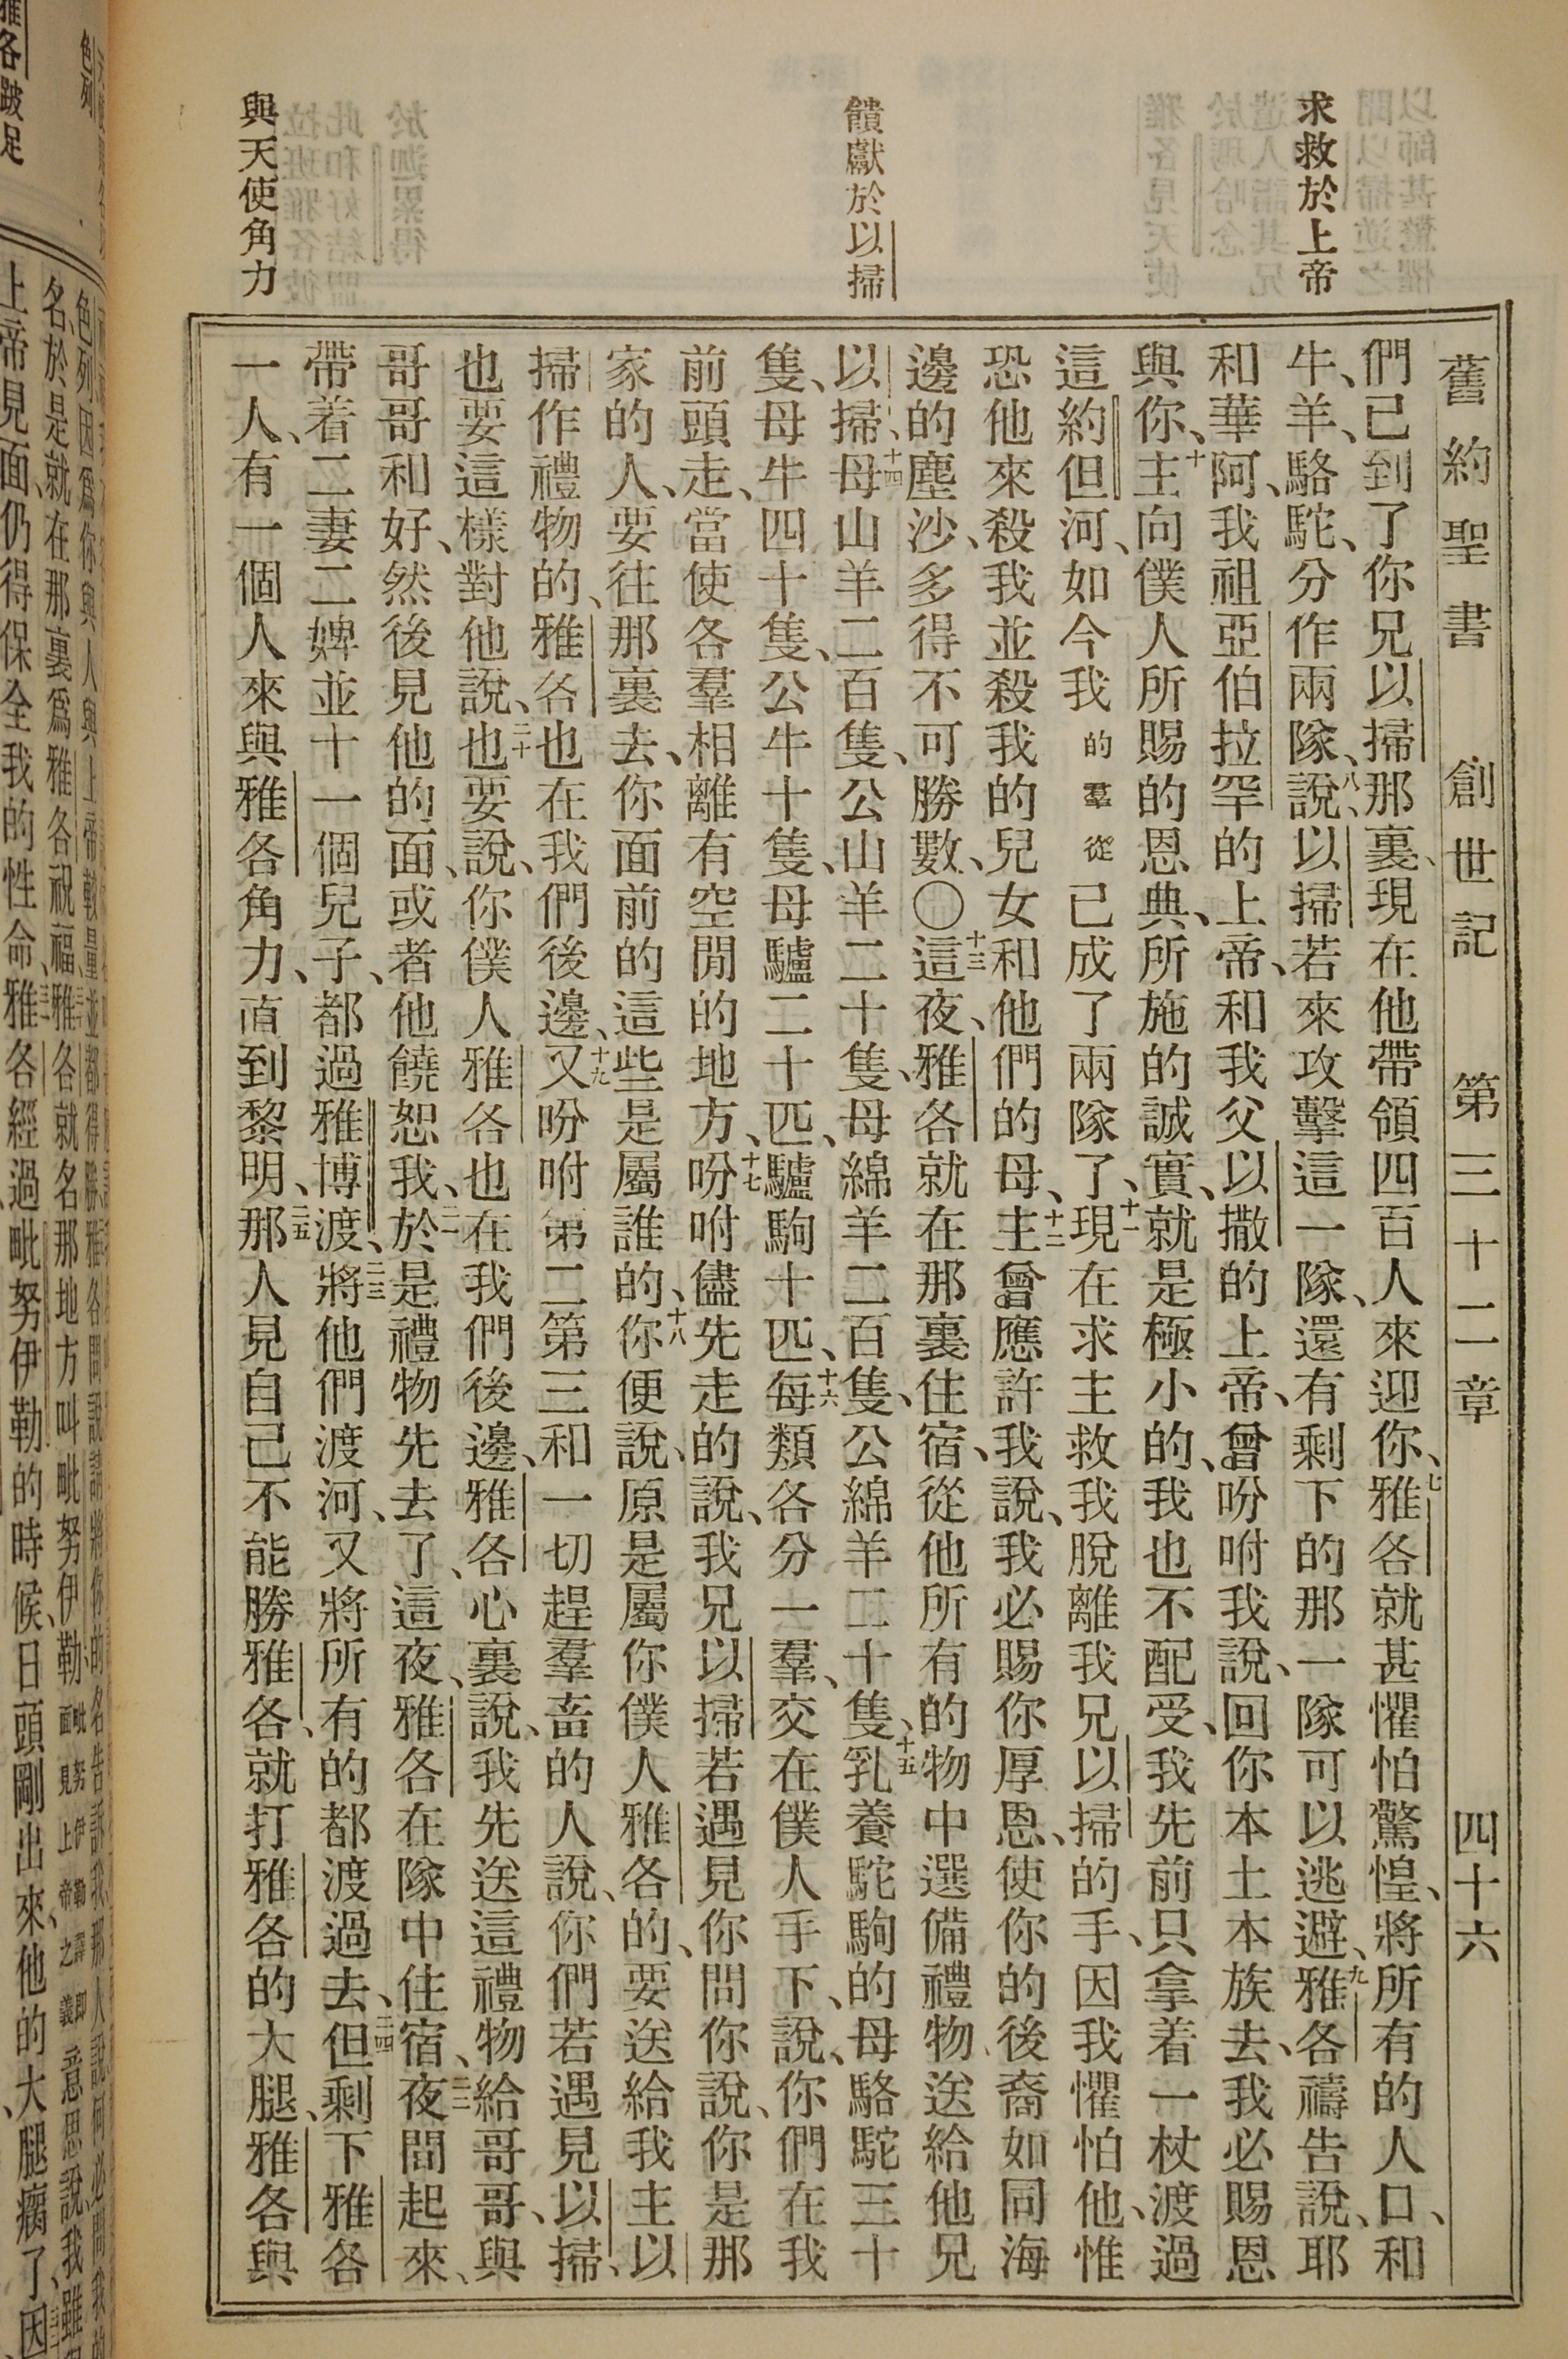 舊約聖書 創世記 第三十二章 四十六
求救於上帝
饋獻於以掃
與天使角力
們已到了你兄以掃那裏、現在他帶領四百人來迎你、七雅各就甚懼怕驚惶、將所有的人口、和
牛、羊、駱駝、分作兩隊、八說、以掃若來攻擊這一隊、還有剩下的那一隊可以逃避、九雅各禱告說、耶
和華阿、我祖亞伯拉罕的上帝、和我父以撒的上帝、曾吩咐我說、回你本土本族去、我必賜恩
與你、十主向僕人所賜的恩典、所施的誠實、就是極小的、我也不配受、我先前只拿着一杖渡過
這約但河、如今我的羣從已成了兩隊了、十一現在求主救我脫離我兄以掃的手、因我懼怕他、惟
恐他來殺我並殺我的兒女和他們的母、十二主曾應許我說、我必賜你厚恩、使你的後裔如同海
邊的塵沙、多得不可勝數、〇十三這夜、雅各就在那裏住宿、從他所有的物中選備禮物、送給他兄
以掃、十四母山羊二百隻、公山羊二十隻、母綿羊二百隻、公綿羊二十隻、十五乳養駝駒的母駱駝三十
隻、母牛四十隻、公牛十隻、母驢二十匹、驢駒十匹、十六每類各分一羣、交在僕人手下、說、你們在我
前頭走、當使各羣相離有空閒的地方、十七吩咐儘先走的說、我兄以掃若遇見你問你說、你是那
家的人、要往那裏去、你面前的這些是屬誰的、十八你便說、原是屬你僕人雅各的、要送給我主以
掃作禮物的、雅各也在我們後邊、十九又吩咐第二第三和一切趕羣畜的人說、你們若遇見以掃、
也要這樣對他說、二十也要說、你僕人雅各也在我們後邊、雅各心裏說、我先送這禮物給哥哥、與
哥哥和好、然後見他的面、或者他饒恕我、二一於是禮物先去了、這夜、雅各在隊中住宿、二二夜間起來、
帶着二妻二婢並十一個兒子、都過雅博渡、二三將他們渡河、又將所有的都渡過去、二四但剩下雅各
一人、有一個人來與雅各角力、直到黎明、二五那人見自己不能勝雅各、就打雅各的大腿、雅各與
上帝見面、仍得保全我的性命、雅各經過毗努伊勒的時候、日頭剛出來、他的大腿瘸了、因